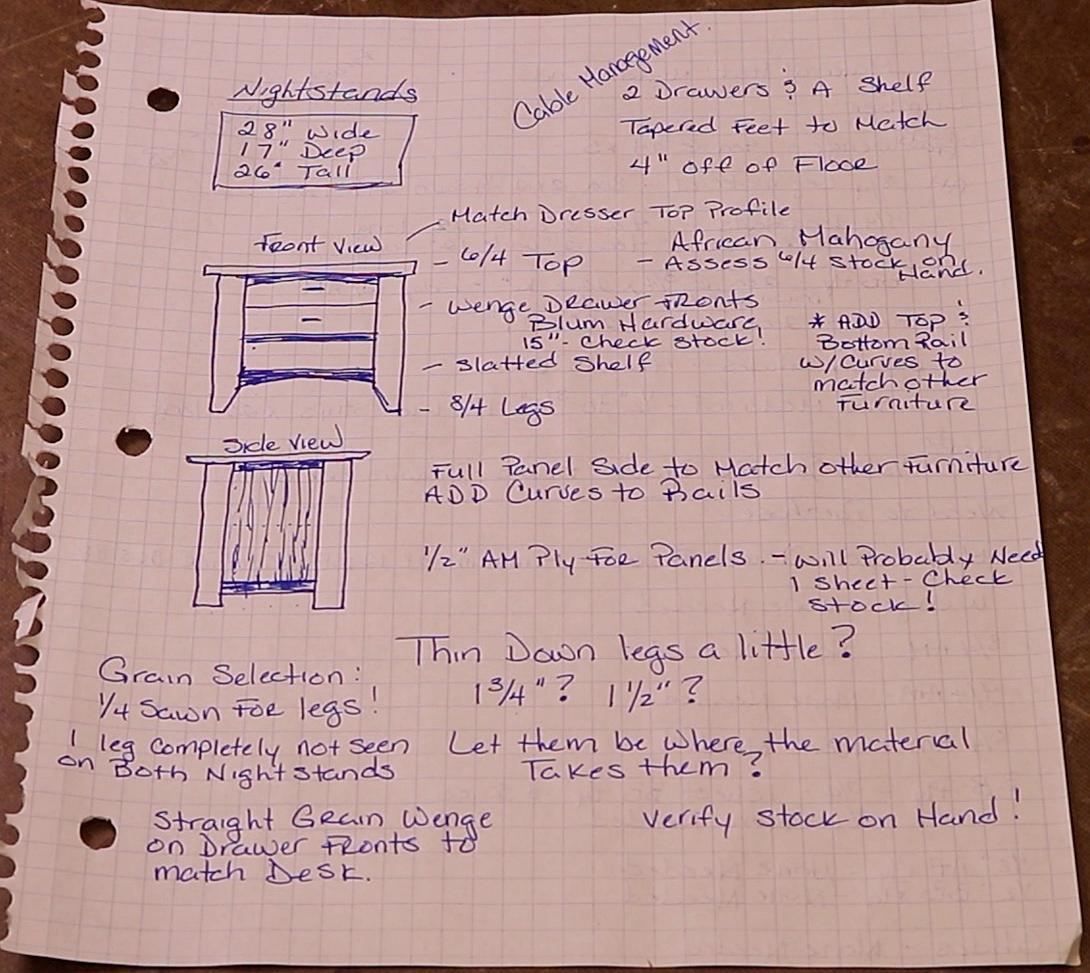 Nightstands
28" Wide
17" Deep
26" Tall
Cable Management
2 Drawers & A Shelf
Tapered Feet to Match
4" off of Floor
Match Dresser Top Profile
Front View
- 6/4 Top
African Mahogany
- Assess 6/4 Stock on
Hand.
- Wenge Drawer Fronts
Blum Hardware,
15" - Check Stock!
* ADD Top &
Bottom Rail
w/Curves to
match other
Furniture
- Slatted Shelf
- 8/4 Legs
Side View
Full Panel Side to Match other Furniture
ADD Curves to Rails
1/2" AM Ply For Panels. - Will Probably Need
1 Sheet - Check
Stock!
Thin Down legs a little?
1 3/4"? 1 1/2"?
Grain Selection:
1/4 Sawn For legs!
1 leg completely not seen
on Both Nightstands
Let them be where the material
Takes them?
Straight Grain Wenge
on Drawer Fronts to
match Desk.
Verify Stock on Hand!